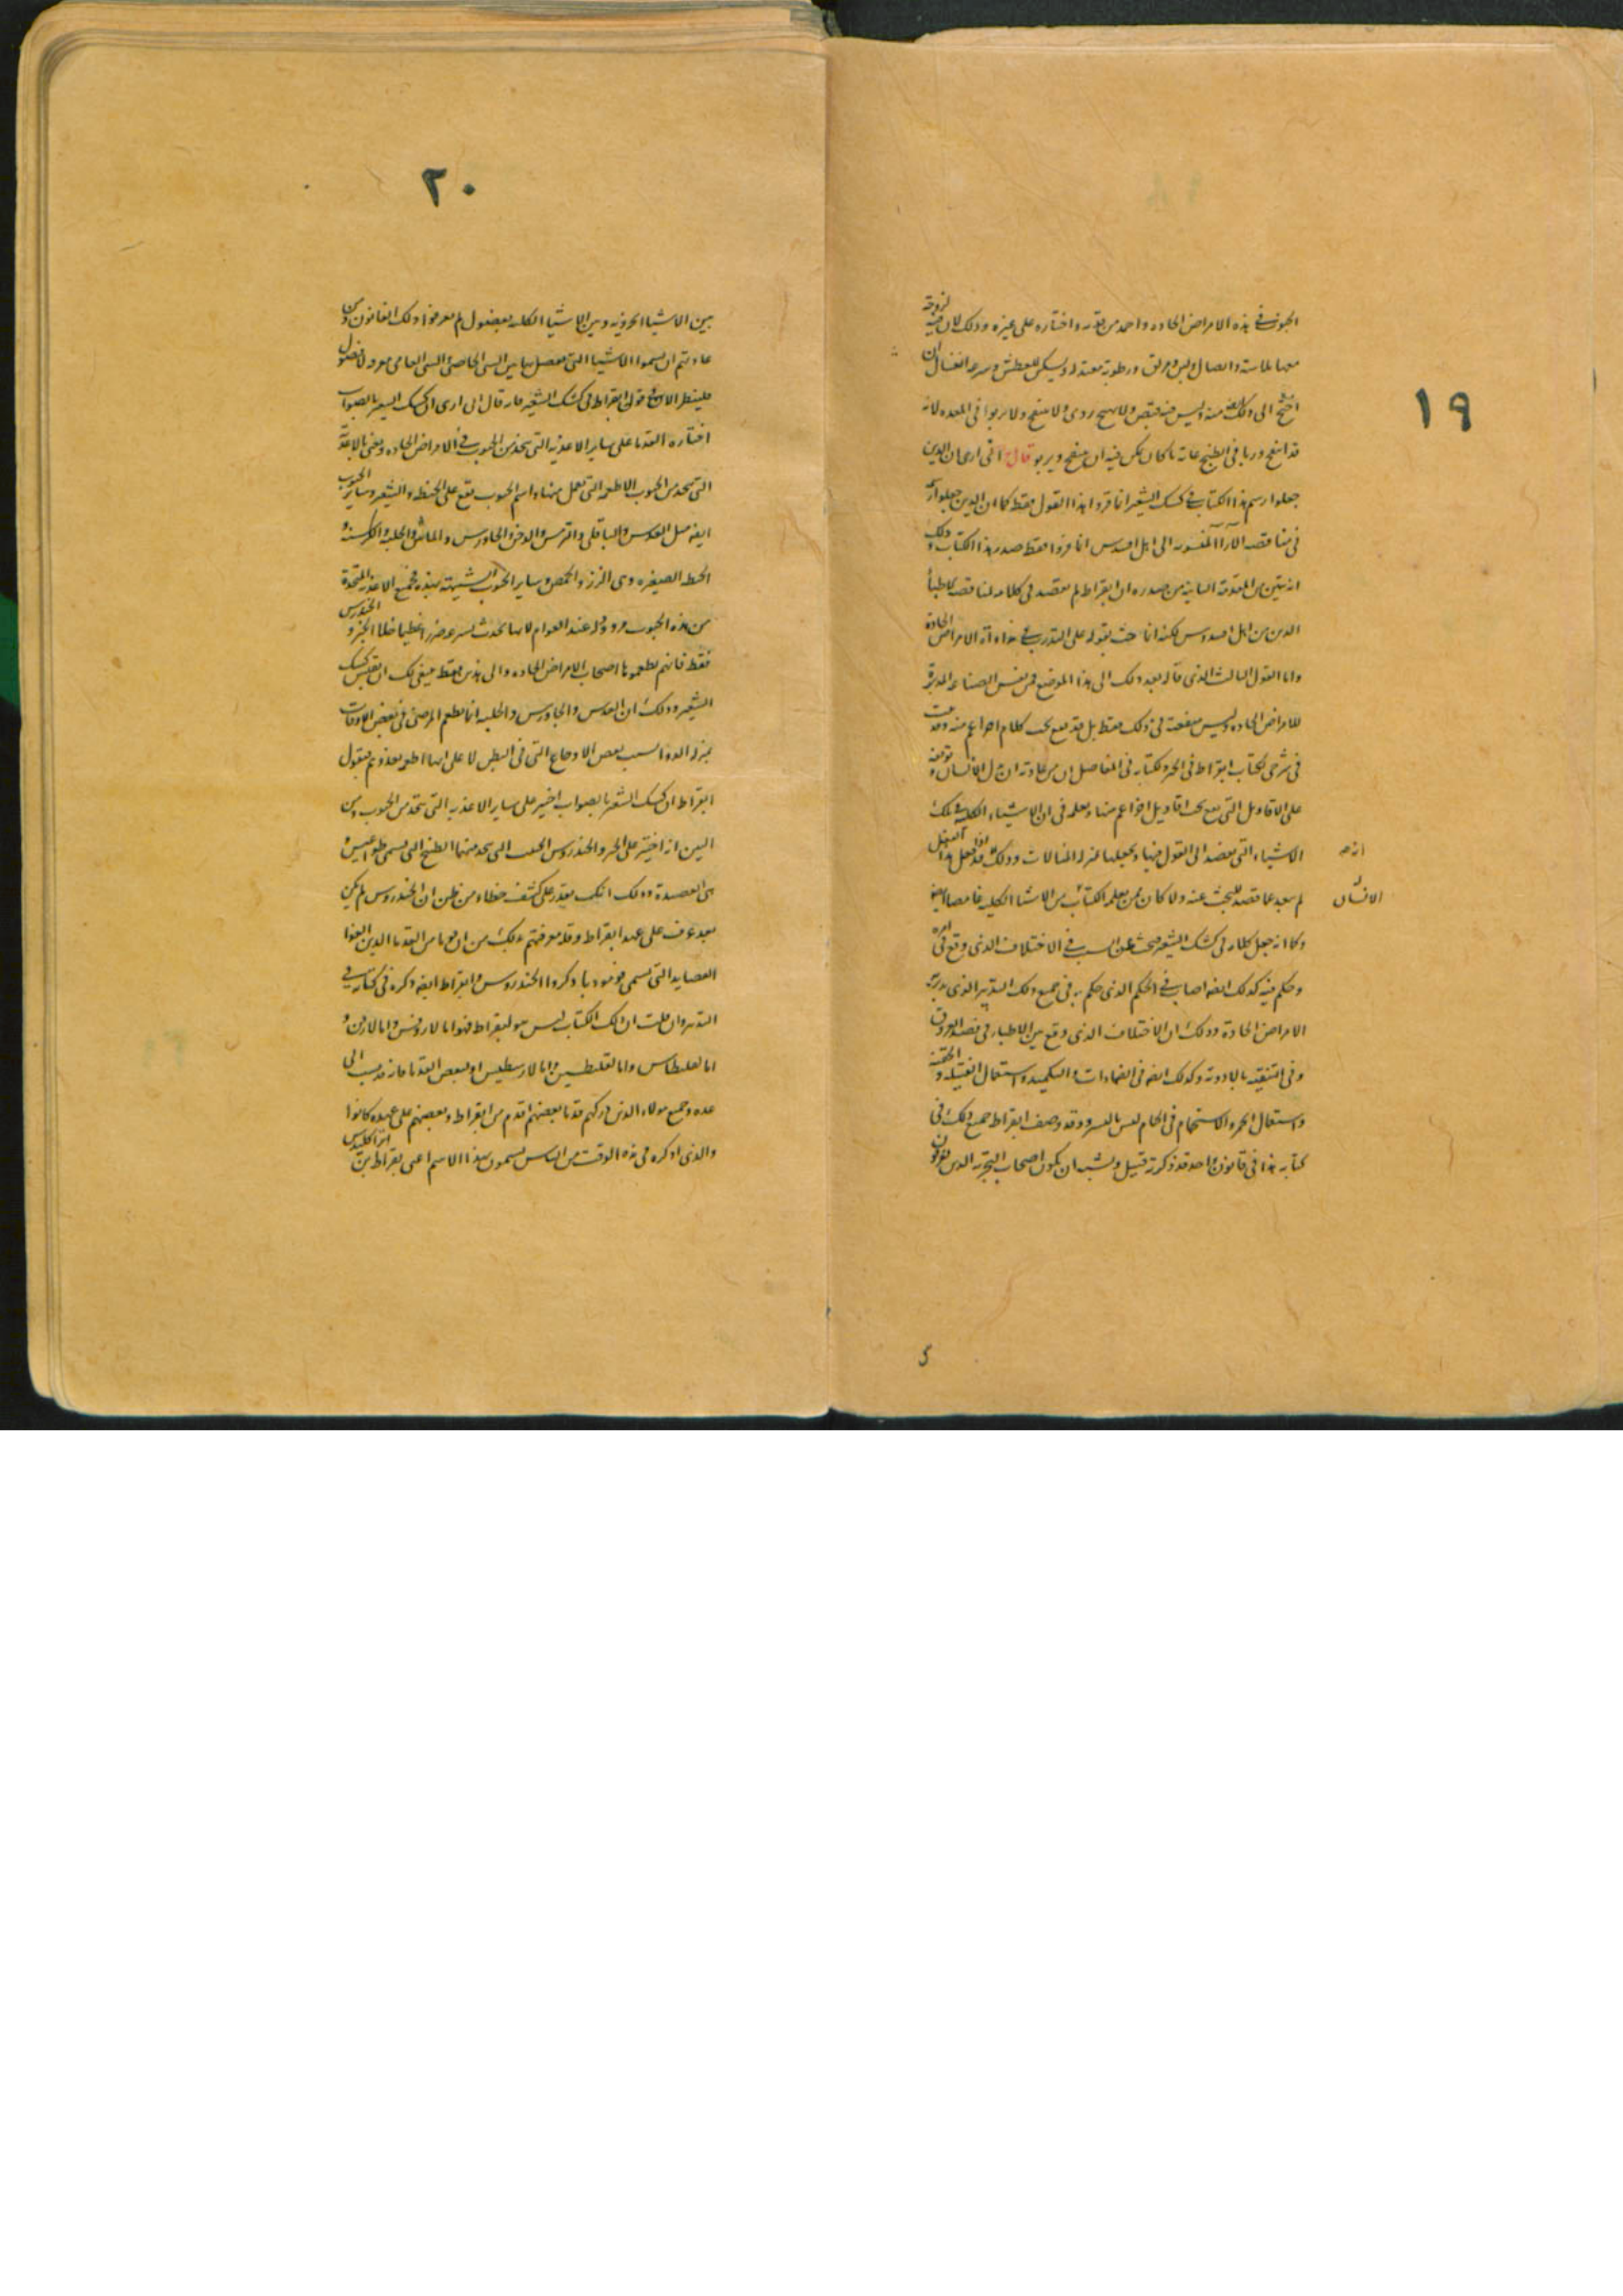 ١٩
الحبوب في هذه الامراض الحاده واحمد من تقدمه واختاره على غيره وذلك لان فيه لزوجة
معها ملاسة واتصال ولين وزلق ورطوبة معتدله وتسكين للعطش وسرعه انغسال ان
احتيج الى ذلك ايضا منه وليس فيه قبض ولا تهييج ردى ولا ينفخ ولا يربوا في المعده لانه
قد انتفخ وربا في الطبخ غاية ما كان يمكن فيه ان ينتفخ ويربو قال انى ارى ان الذين
جعلوا رسم هذا الكتاب في كشك الشعير انما قروا هذا القول فقط كما ان الذين جعلوا رسمه
في مناقضه الآراء المنسوبه الى اهل اقنيدس انما قروا فقط صدر هذا الكتاب وذلك
انه يتبين من المقدمة الثانية من صدره ان ابقراط لم يقصد في كلامه لمناقضه الاطباء
الذين من اهل اقنيدوس لكنه انما حث بقوله على التدرب في مداواة الامراض الحادة
واما القول الثالث الذى قاله بعد ذلك الى هذا الموضع فمن نفس الصناعه المدبرة
للامراض الحاده وليس منفعته في ذلك فقط بل قد يقع تحت كلام اخر اعم منه وقد بينت
في شرحى لكتاب ابقراط في الجبر ولكتابه في المفاصل ان من عادته ان يدل الانسان وتوقفه
على الاقاويل التى تقع تحت اقاويل اخر اعم منها ويعلمه في ان الاشياء الكليه في تلك
الاشياء التى يقصد الى القول فيها ويجعلها بمنزله المثالات وذلك انه قد فعل هذا الفعل
انه
لم يبعد عما قصد للبحث عنه ولا كان ممن يعلمه الكتاب من الاشيا الكليه غامضا ايضا
الانسان
وكما انه جعل كلامه في كشك الشعير بحث عن السبب في الاختلاف الذى وقع في امره
وحكم فيه كذلك ايضا اصاب في الحكم الذى حكم به في جميع ذلك التدبير الذى يدبر به
الامراض الحادة وذلك ان الاختلاف الذى وقع بين الاطباء في فصد العروق
وفي التنقيه بالادوية وكذلك ايضا في الضمادات والتكميد واستعمال الفتيله والحقنة
واستعمال الخمر والاستحمام في الحمام ليس باليسير وقد وصف ابقراط جميع ذلك في
كتابه هذا في قانون واحد قد ذكرته قبيل ويشبه ان يكون اصحاب التجربه الذين يفرقون
٢٠
بين الاشياء الجزويه وبين الاشياء الكليه بفصول لم يعرفوا ذلك القانون ومن
عادتهم ان يسموا الاشياء التى تفصل بها بين الشى الخاصى والشى العامى معدوله لا فصول
فلينظر الان في قول ابقراط في كشك الشعير فانه قال انى ارى ان كشك الشعير بالصواب
اختاره القدما على ساير الاغذيه التى تتخذ من الحبوب في الامراض الحاده ويعنى بالاغذية
التى تتخذ من الحبوب الاطعمه التى تعمل منها واسم الحبوب يقع على الحنطه والشعير وساير الحبوب
ايضا مثل العدس والباقلى والترمس والدخن والجاورس والماش والحلبه والكرسنه و
الحنطه الصغيره وهى الارز والحمص وساير الحبوب الشبيهة بهذه فجميع الاغذيه المتخذة
من هذه الحبوب مرذوله عند العوام لانها تحدث بسرعه ضررا عظيما خلا الخبز والخندروس
فقط فانهم يطعمونها اصحاب الامراض الحاده والى هذين فقط ينبغى لك ان تقيس كشك
الشعير وذلك ان العدس والجاورس والحلبه انما يطعم المرضى في بعض الاوقات
بمنزله الدوا بسبب بعض الاوجاع التى في البطن لا على انها اطعمه بعد ذلك ثم يقول
ابقراط ان كشك الشعير بالصواب اختير على ساير الاغذيه التى تتخذ من الحبوب ومن
البين انه اختير على الخبز والخندروس
هى العصيدة وذلك انك تقدر على كشف خطاء من ظن ان الخندروس لم يكن
بعد عرف على عهد ابقراط وقد معرفتهم ذلك من ان قوما من القدما الذين الفوا
العصايد التى تسمى قوموديا ذكروا الخندروس وابقراط ايضا ذكره في كتابه في
التدبير وان قلت ان ذلك الكتاب ليس هو لابقراط فهو اما لاروفنس واما لارفن و
اما لفليطاس واما لفيلسطين واما لارسطيس او لبعض القدما فانه قد ينسب الى
عده وجميع هولاء الذين ذكرتهم قدما بعضهم اقدم من ابقراط وبعضهم على عهده كانوا
والذى اذكره في هذه الوقت من الناس يسمون بهذا الاسم اعنى بقراط بن ايراكليدس